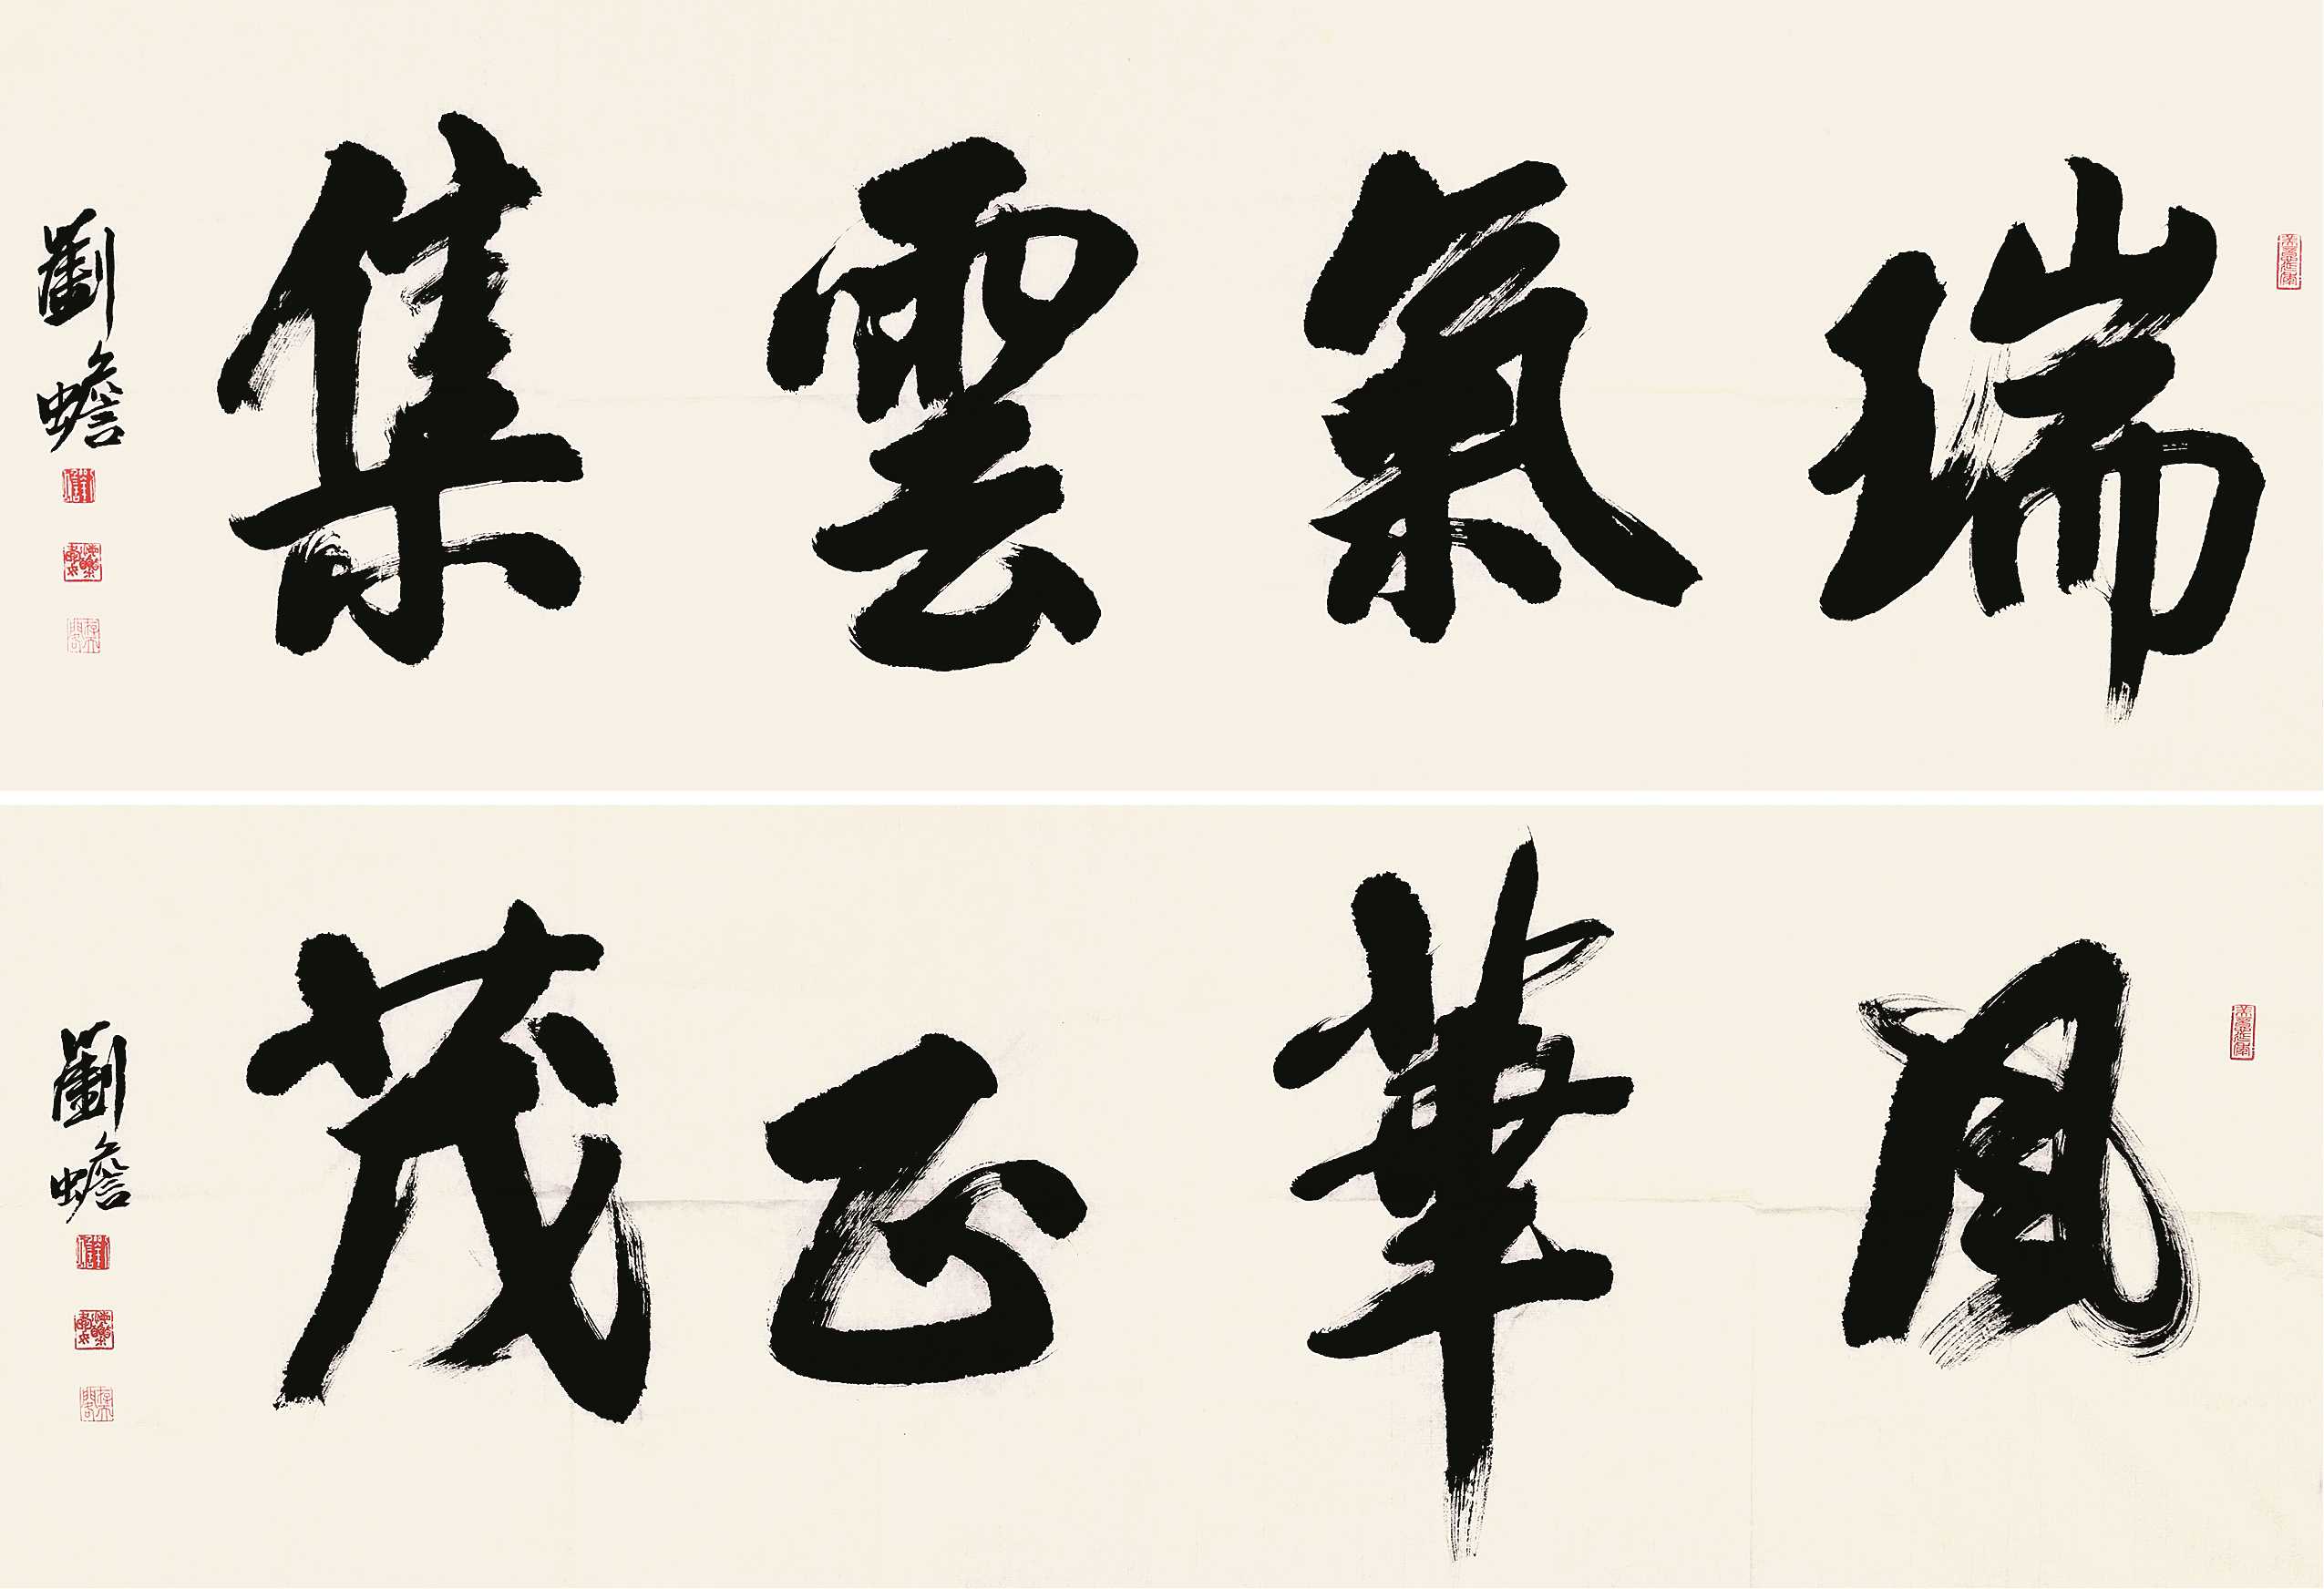 瑞氣雲集
劉蟾
風華正茂
劉蟾